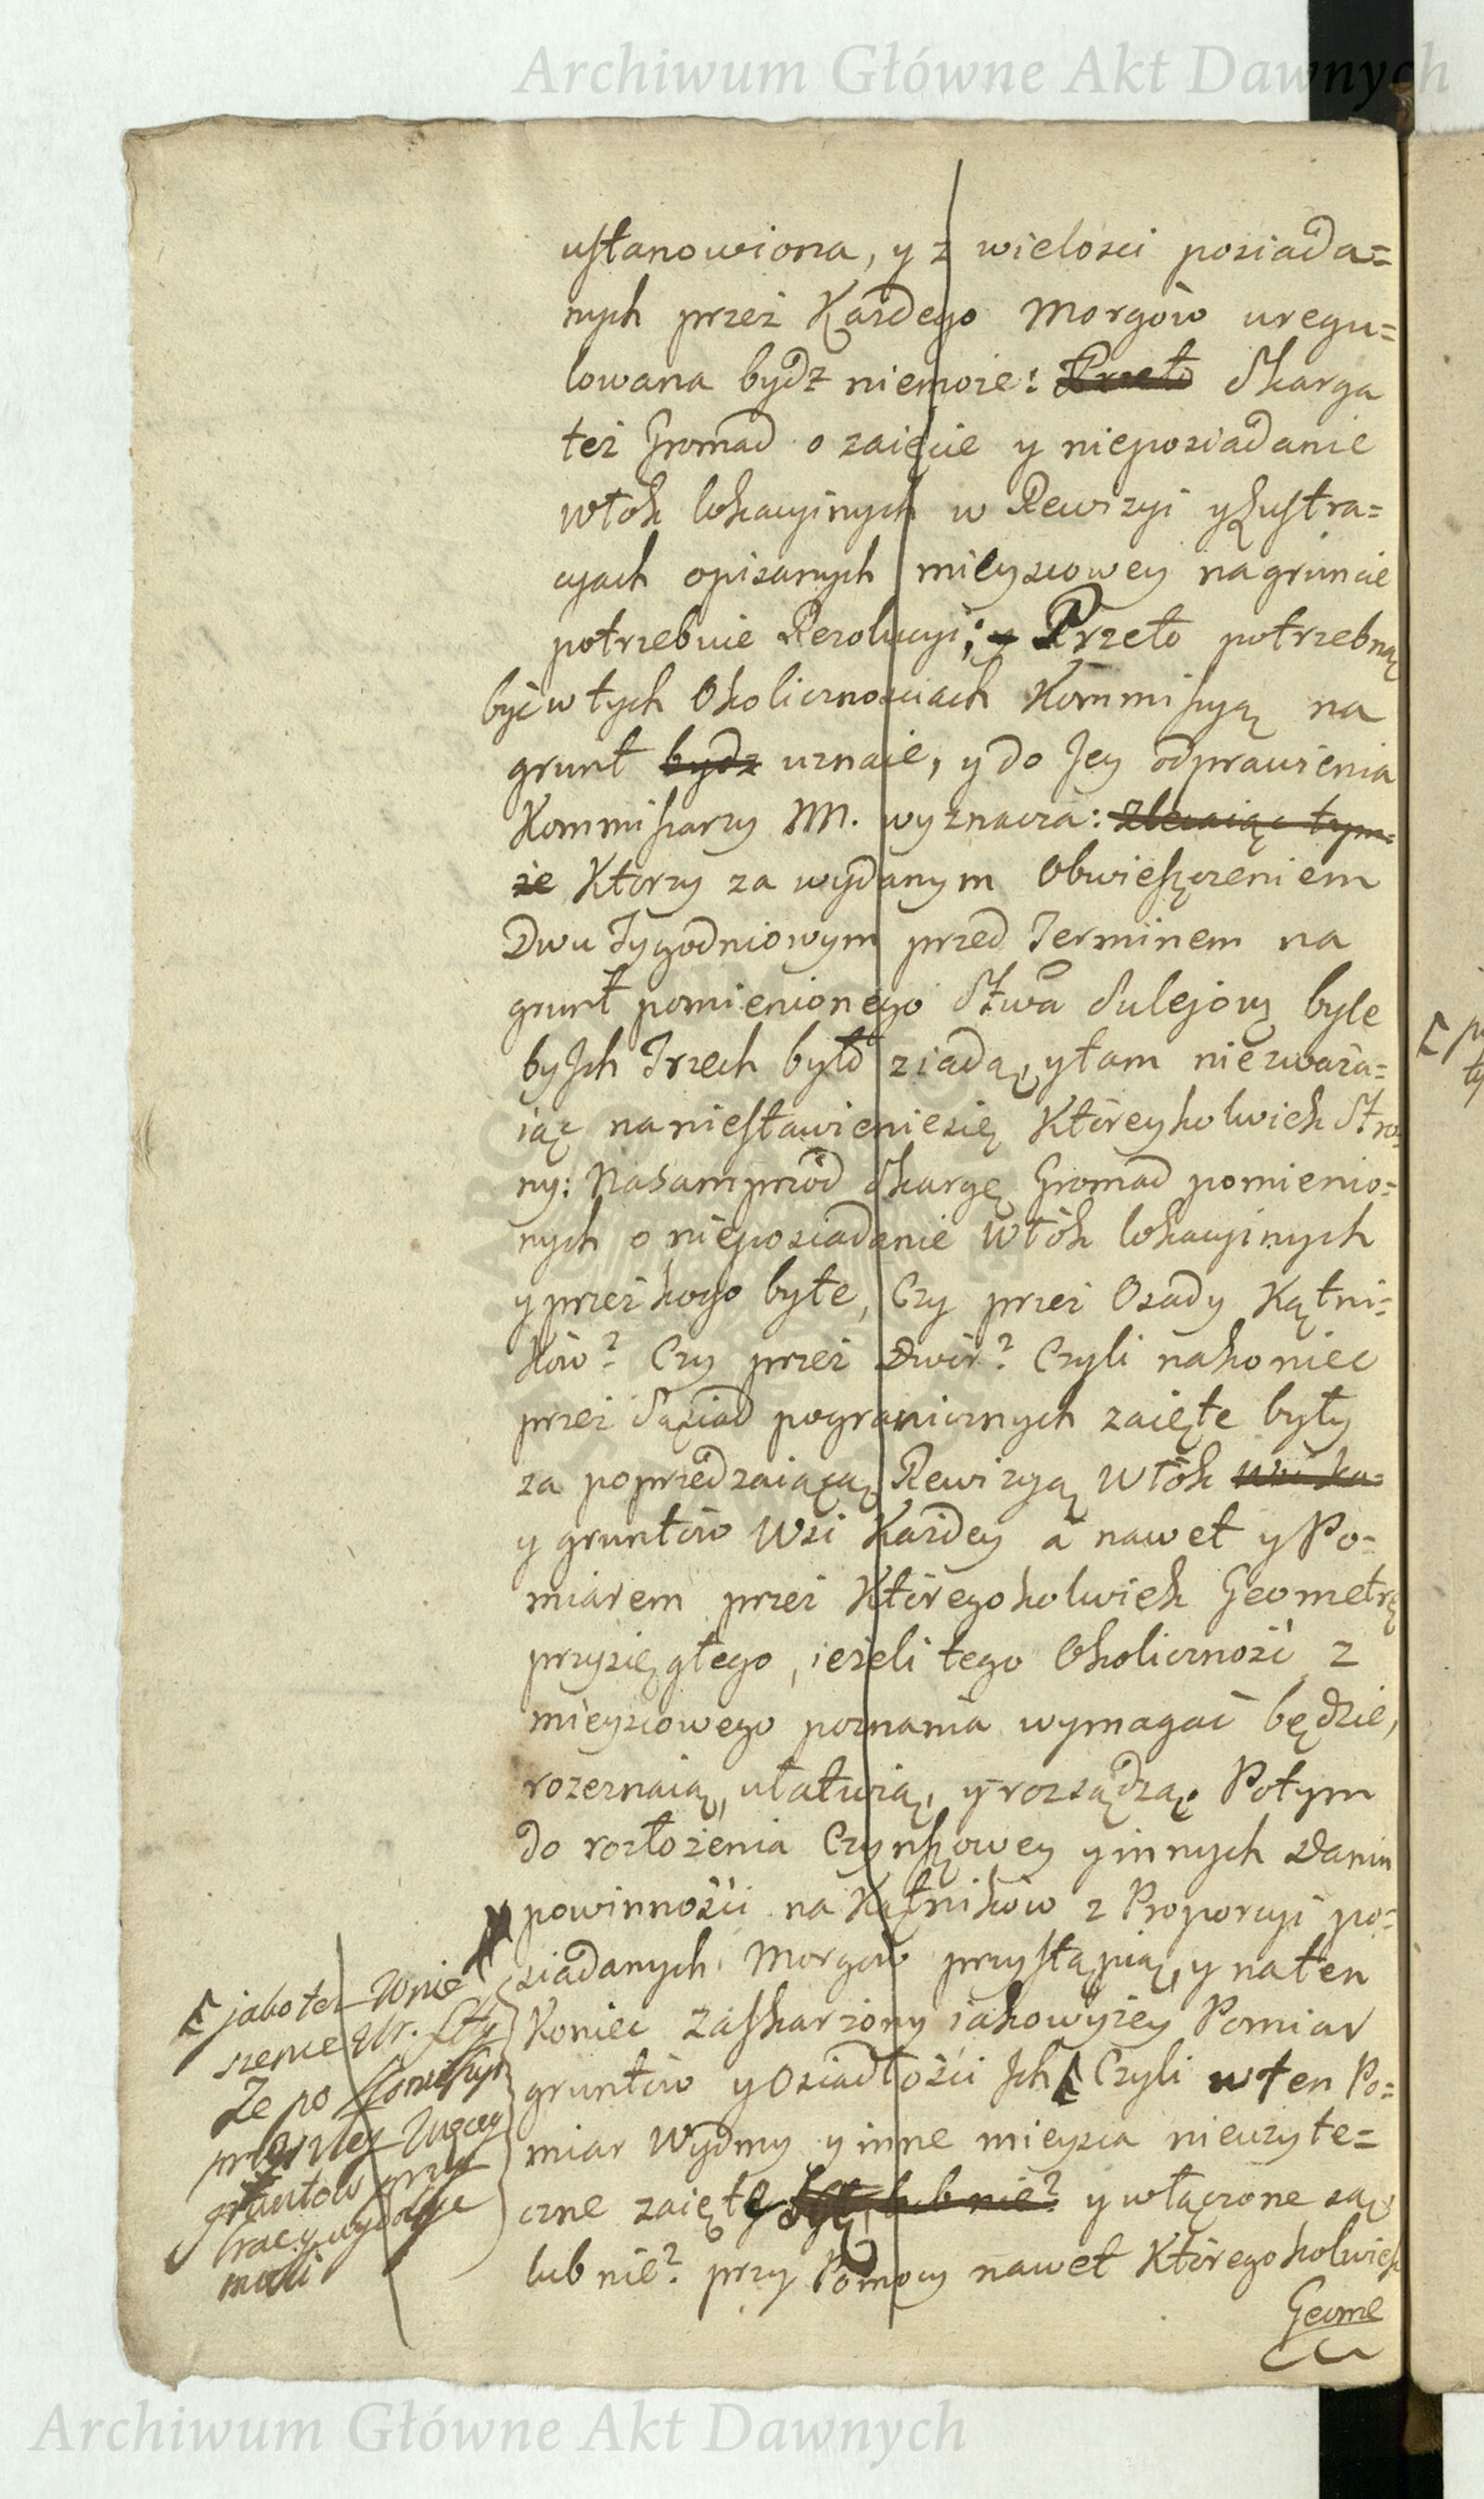 Archiwum Główne Akt Dawnych
ustanowiona, y z wielosci posiada=
nych przez Kazdego Morgow uregu=
lowana bydz niemoze: Przeto Skarga
tez Gromad o zaięcie y nieposiadanie
włok lokacyinych w Rewizyi y Lustra=
cyach opisanych mieyscowey na gruncie
potrzebuie Rezolucyi; y Przeto potrzebną
być w tych Okolicznosciach Kommissyą na
grunt bydz uznaie, y do Jey odprawienia
Kommissarzy NN. wyznacza: Zlecaiąc tym=
ze Ktorzy za wydanym Obwieszczeniem
Dwu Tygodniowym przed Terminem na
grunt pomienionego Stwa Sulejow byle
by Jch Trzech było ziadą, y tam niezwaza=
iąc na niestawienie się Ktoreykolwiek Stro=
ny: Nasamprzod Skargę Gromad pomienio=
nych o nieposiadanie Włok lokacyinych
y przez kogo byłe, Czy przez Osady Kątni=
kow? Czy przez Dwor? Czyli nakoniec
przez Sąsiad pogranicznych zaięte były
za poprzedzaiącą Rewizyą Włok
y gruntow Wsi Kazdey a nawet y Po=
miarem przez Ktoregokolwiek Geometrę
przysięgłego, iezeli tego Okoliczność z
mieyscowego poznania wymagać będzie,
rozeznaią, ułatwią, y rozsądzą. Potym
do rozłożenia Czynszowey y innych Danin
y powinności na Kątnikow z Proporcyi po=
siadanych Morgow przystąpią, y na ten
Koniec zaskarzony iakowyzey Pomiar
gruntow y Osiadłości Jch Czyli w ten Po=
miar Wydmy y inne mieysca nieuzyte=
czne zaięte lub nie? y włączone są
lub nie? przy Pomocy nawet Ktoregokolwiek
Geome
jako też Wnie
sienie Ur. Stty
Ze po
więcey
gruntow przy
mieli
Archiwum Główne Akt Dawnych